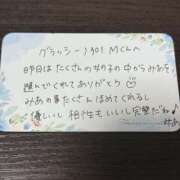 グラッシー1901 MCんへ
昨日はたくさんの女の子の中からみあを
選んでくれてありがとう♡
みあの事たくさんほめてくれるし
優しいし 相性もいいし完璧だね♪
みあ